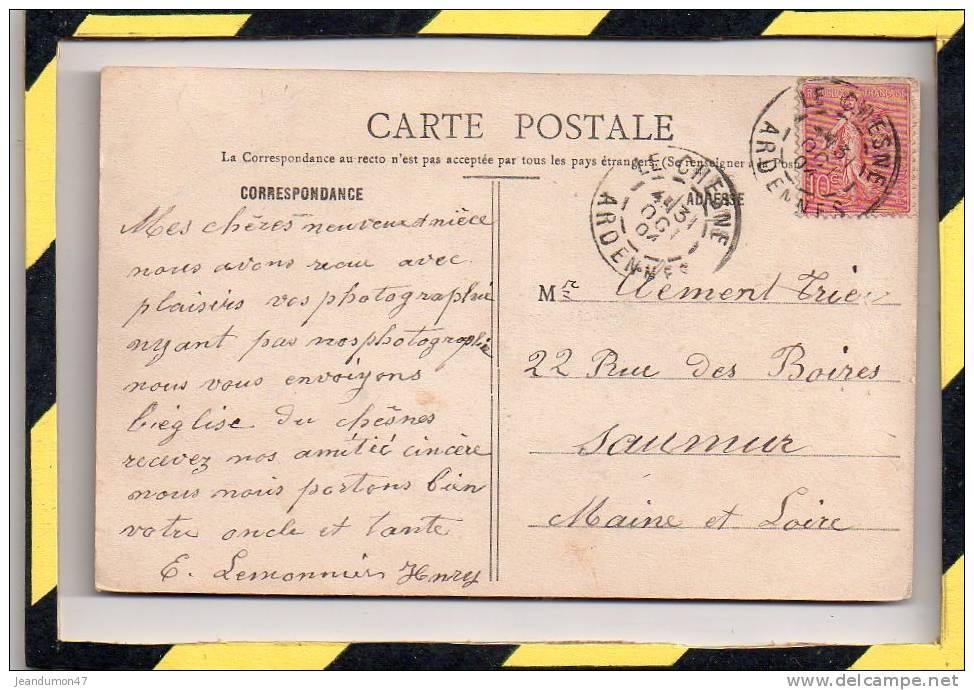 CARTE POSTALE
La Correspondance au recto n'est pas acceptée par tous les pays étrangers (Se renseigner à la Poste
CORRESPONDANCE
Mes chères neuveux et nièce
nous avons recue avec
plaisirs vos photographie
nyant pas nos photographie
nous vous envoiyons
l'église du chêsnes
recevez nos amitié cincère
nous nous portons bien
votre oncle et tante
E. Lemonnier Henry
ADRESSE
Mr Clement Trieu
22 Rue des Boires
Saumur
Maine et Loire
LE CHESNE
ARDENNES
31
OCT
04
REPUBLIQUE FRANÇAISE
10c
LE CHESNE
ARDENNES
jeandumon47
www.delcampe.net